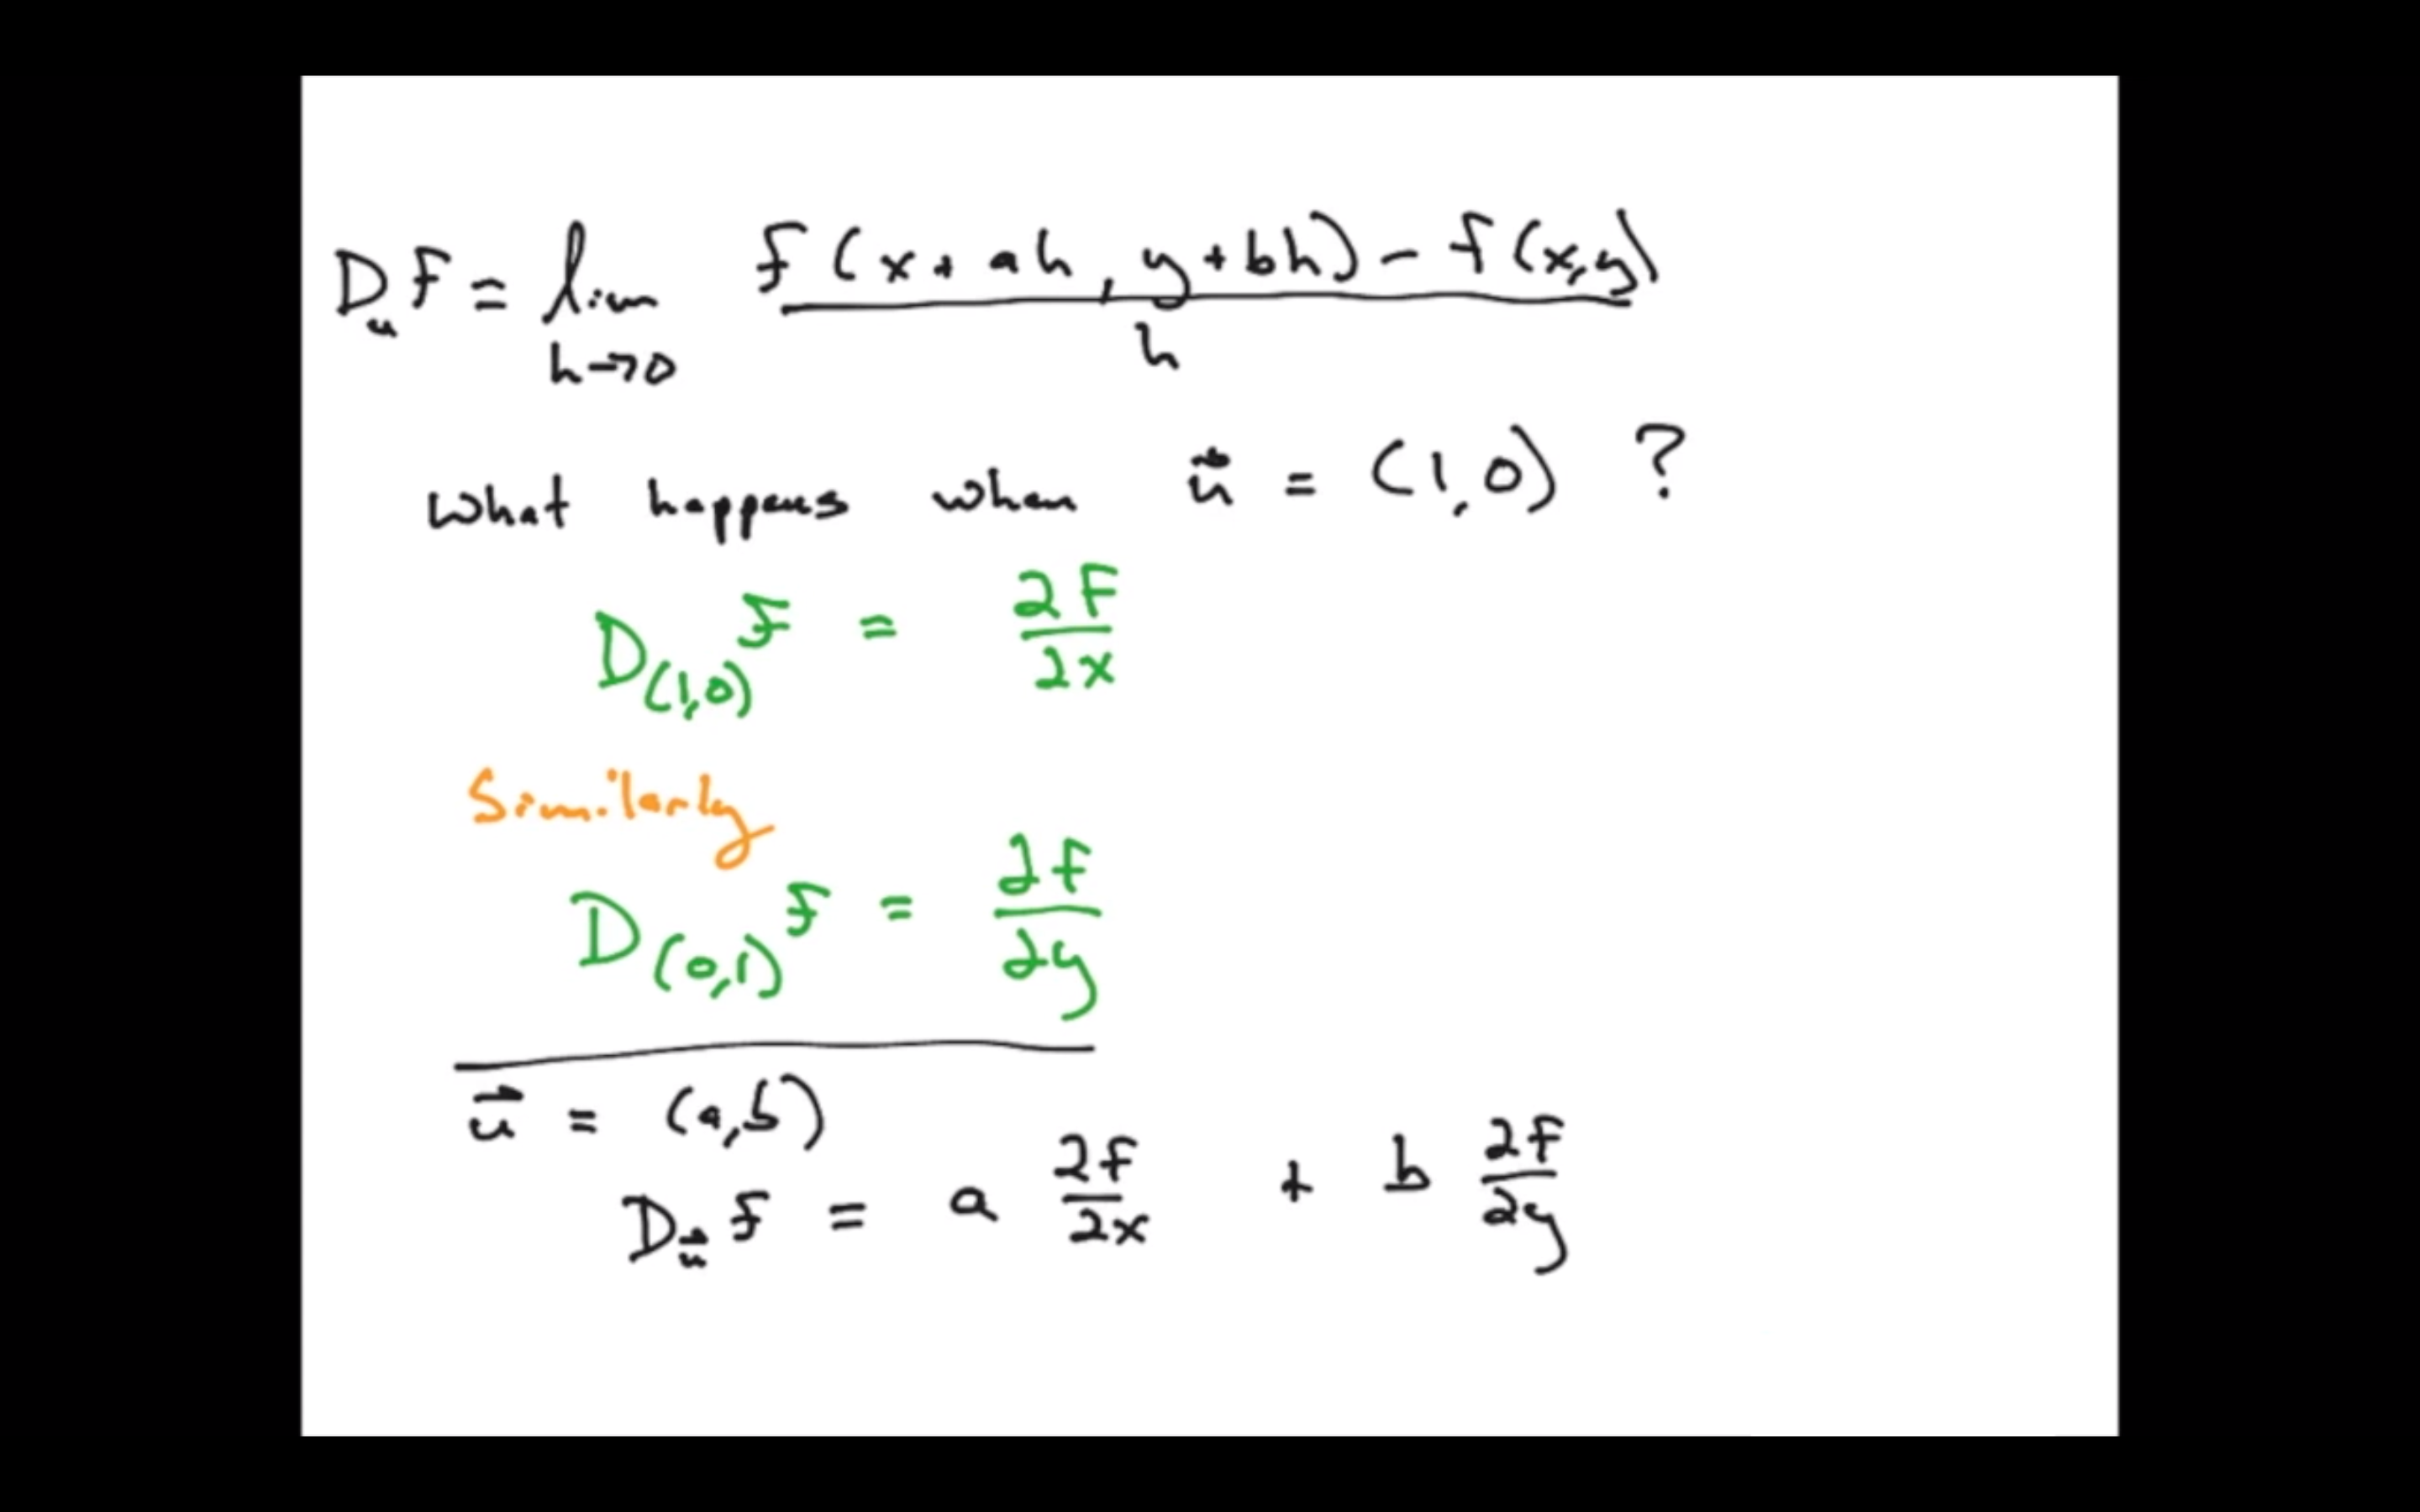 D_u f = lim_{h→0} (f(x+ah, y+bh) - f(x,y)) / h
what happens when u⃗ = (1,0) ?
D_(1,0) f = ∂f/∂x
Similarly
D_(0,1) f = ∂f/∂y
u⃗ = (a,b)
D_u⃗ f = a ∂f/∂x + b ∂f/∂y